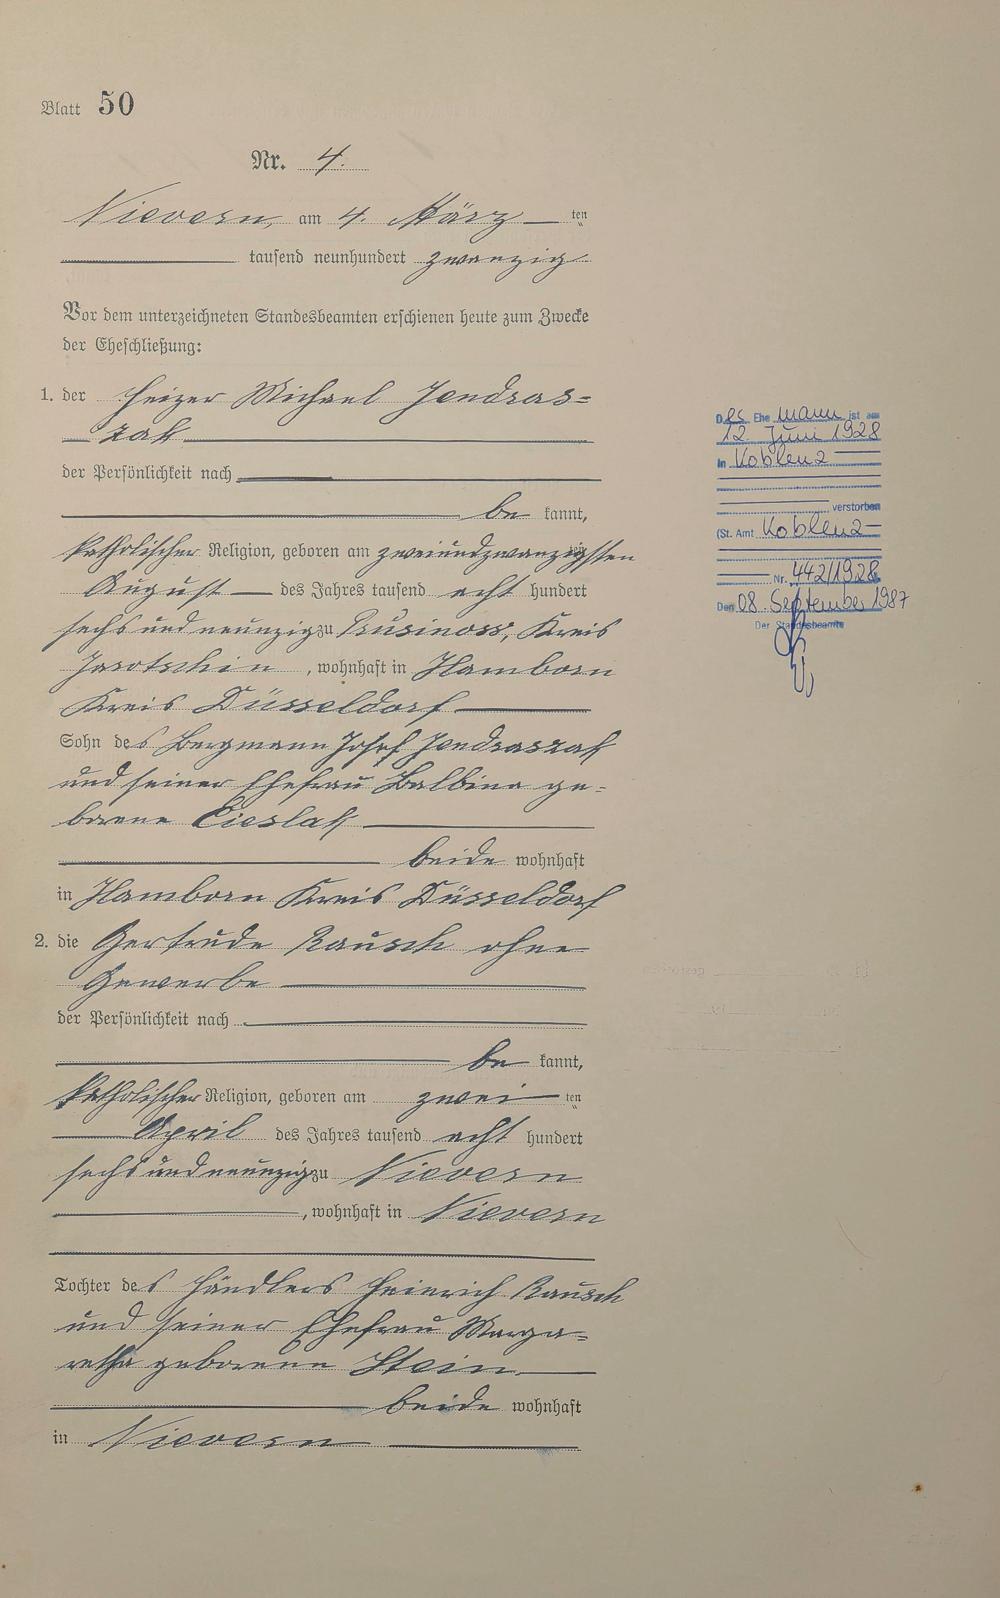 Blatt 50
Nr. 4.
Nievern, am 4. März ten
tausend neunhundert zwanzig
Vor dem unterzeichneten Standesbeamten erschienen heute zum Zwecke
der Eheschließung:
1. der Heizer Michael Jendras=
zak
der Persönlichkeit nach
be kannt,
katholischer Religion, geboren am zweiundzwanzigsten
August des Jahres tausend acht hundert
sechs und neunzig zu Rusinoss, Kreis
Jarotschin, wohnhaft in Hamborn
Kreis Düsseldorf
Sohn des Bergmann Josef Jendraszak
und seiner Ehefrau Balbina ge=
borene Cieslak
beide wohnhaft
in Hamborn Kreis Düsseldorf
2. die Gertrude Rausch ohne
Gewerbe
der Persönlichkeit nach
be kannt,
katholischer Religion, geboren am zwei ten
April des Jahres tausend acht hundert
sechs und neunzig zu Nievern
, wohnhaft in Nievern
Tochter des Händlers Heinrich Rausch
und seiner Ehefrau Marga=
retha geborenen Stein
beide wohnhaft
in Nievern
Des Ehe mann ist am
12. Juni 1928
in Koblenz
verstorben
(St. Amt Koblenz
Nr. 442/1928
Den 08. September 1987
Der Standesbeamte